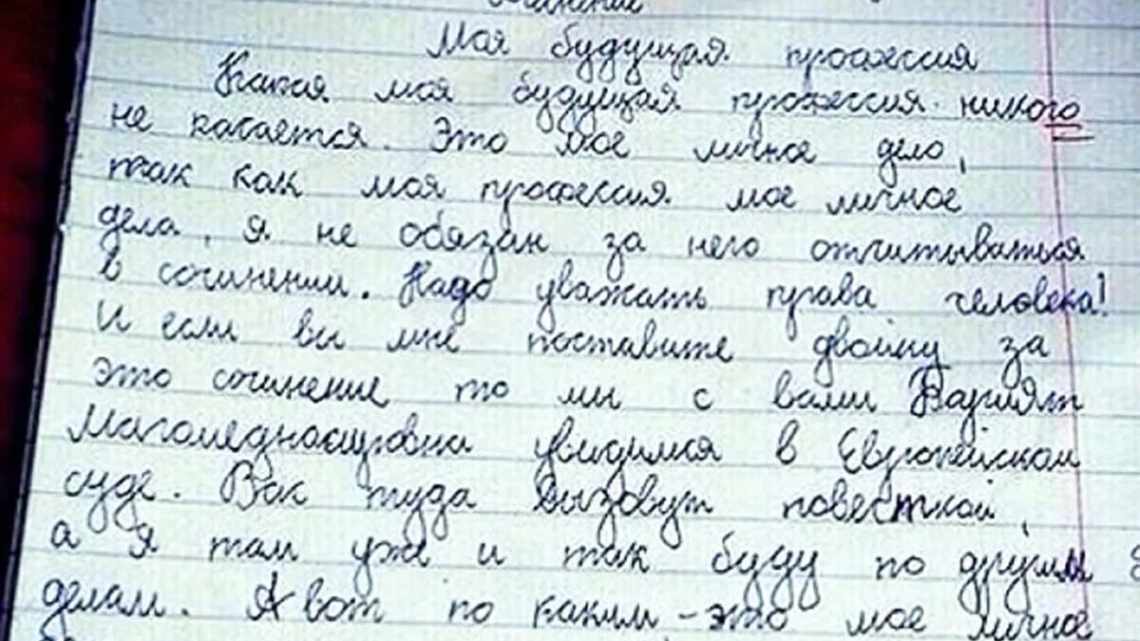 Сочинение
Моя будущая профессия
Какая моя будущая профессия никого
не касается. Это мое личное дело,
так как моя профессия мое личное
дела, я не обязан за него отчитываться
в сочинении. Надо уважать права человека!
И если вы мне поставите двойку за
это сочинение то мы с вами Варият
увидимся в Европейском
суде. Вас туда вызовут повесткой,
а я там уже и так буду по другим
делам. А вот по каким - это мое личное